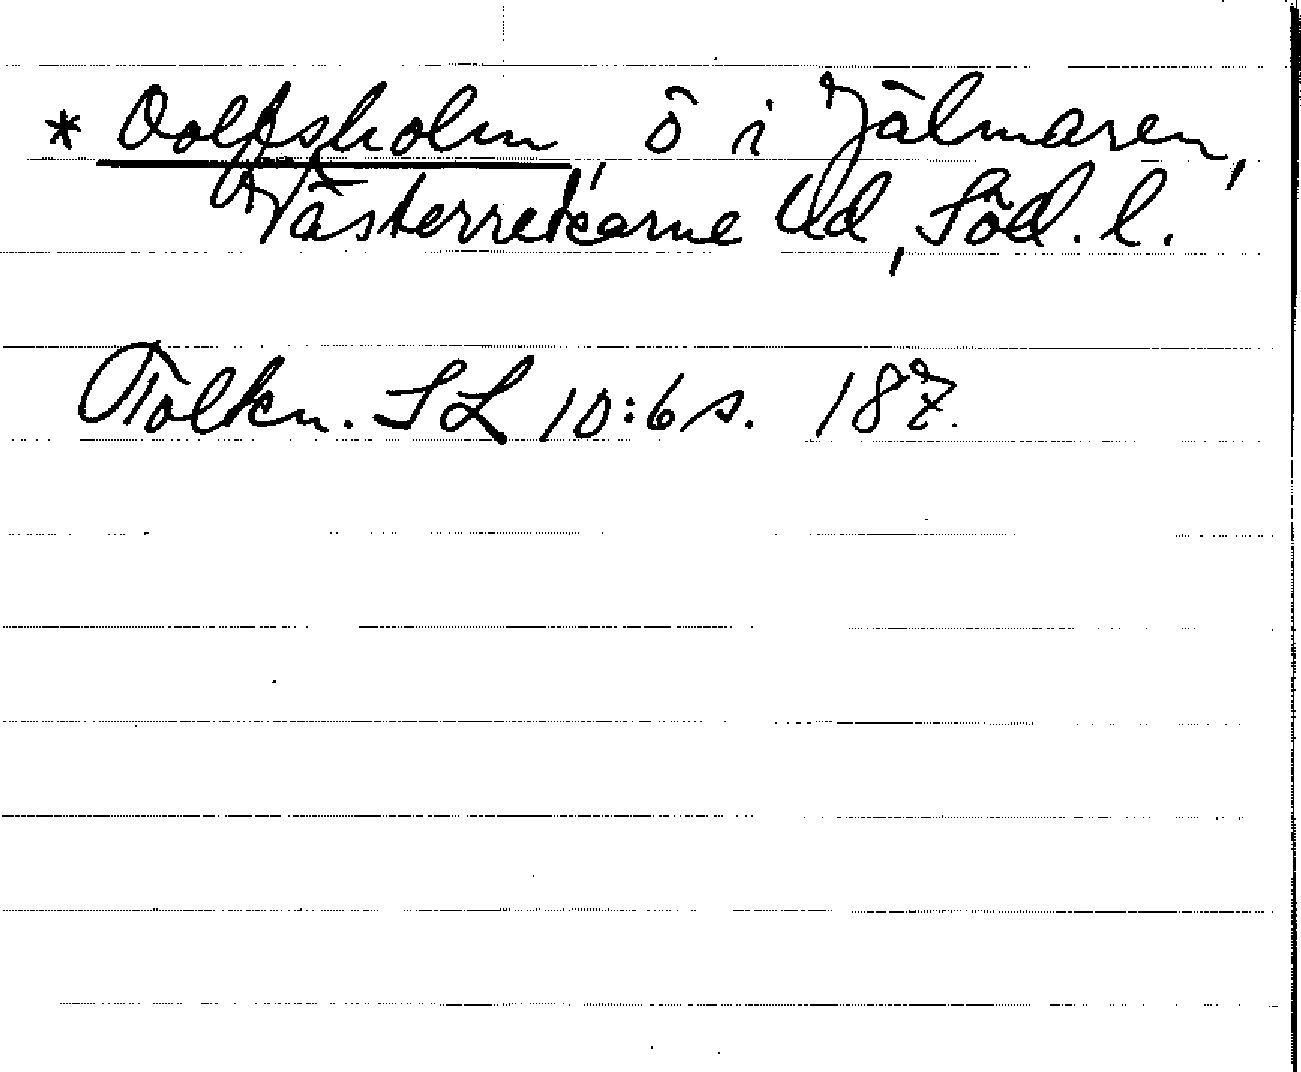 * Oolfsholm, ö i Jälmaren,
Västerrekarne hd, Söd. l.
Tolkn. SL 10:6 s. 187.